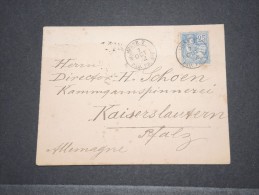 Herrn
Director H. Schoen
Kammgarnspinnerei
Kaiserslautern
Pfalz
Allemagne
25